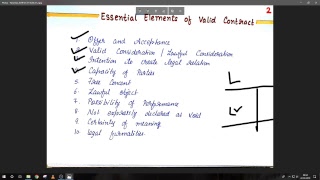 Essential Elements of Valid Contract
2
1. Offer and Acceptance
2. Valid Consideration / Lawful Consideration
3. Intention to create legal relation
4. Capacity of Parties
5. Free Consent
6. Lawful Object
7. Possibility of Performance
8. Not expressly declared as Void
9. Certainty of meaning
10. legal formalities